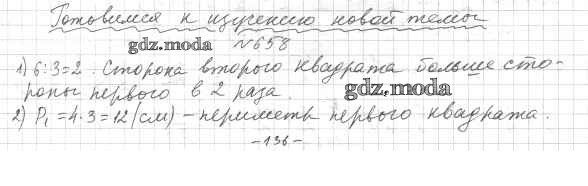 Готовимся к изучению новой темы
gdz.moda
№658
1) 6:3=2. Сторона второго квадрата больше сто-
роны первого в 2 раза.
gdz.moda
2) P₁=4·3=12(см) – периметр первого квадрата.
-136-